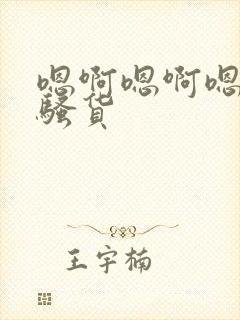 嗯啊嗯啊嗯
骚货
王宇楠